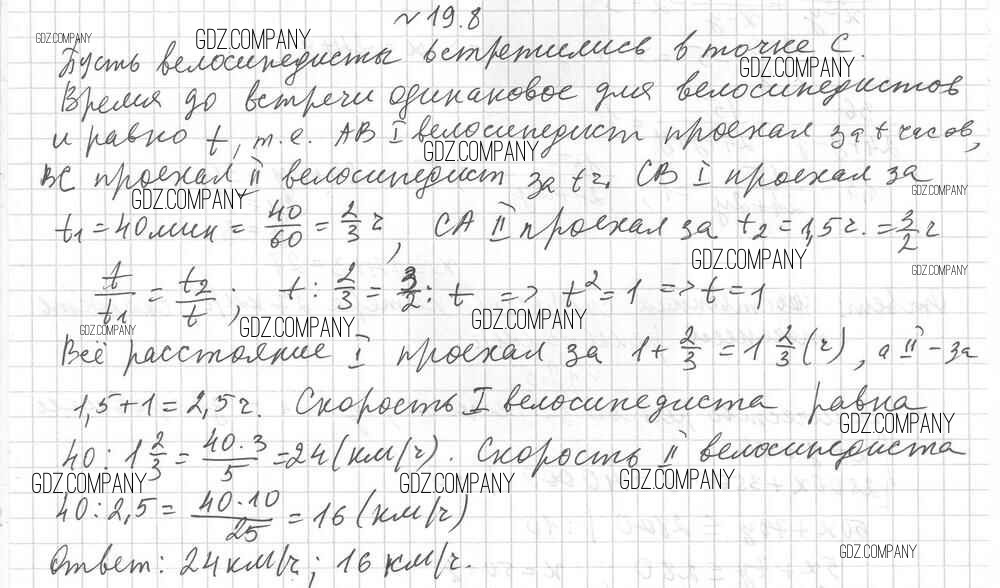 № 19.8
GDZ.COMPANY GDZ.COMPANY
Пусть велосипедисты встретились в точке С.
GDZ.COMPANY
Время до встречи одинаковое для велосипедистов
и равно t, т.е. АВ I велосипедист проехал за t часов,
GDZ.COMPANY
ВС проехал II велосипедист за t ч. СВ I проехал за
GDZ.COMPANY GDZ.COMPANY
t₁ = 40 мин = 40/60 = 2/3 ч, СА II проехал за t₂ = 1,5 ч. = 3/2 ч
GDZ.COMPANY GDZ.COMPANY
t/t₁ = t₂/t; t : 2/3 = 3/2 : t => t² = 1 => t = 1
GDZ.COMPANY GDZ.COMPANY GDZ.COMPANY
Всё расстояние I проехал за 1 + 2/3 = 1 2/3 (ч), а II – за
1,5 + 1 = 2,5 ч. Скорость I велосипедиста равна
GDZ.COMPANY
40 : 1 2/3 = 40·3/5 = 24 (км/ч). Скорость II велосипедиста
GDZ.COMPANY GDZ.COMPANY GDZ.COMPANY
40 : 2,5 = 40·10/25 = 16 (км/ч)
GDZ.COMPANY
Ответ: 24 км/ч; 16 км/ч.